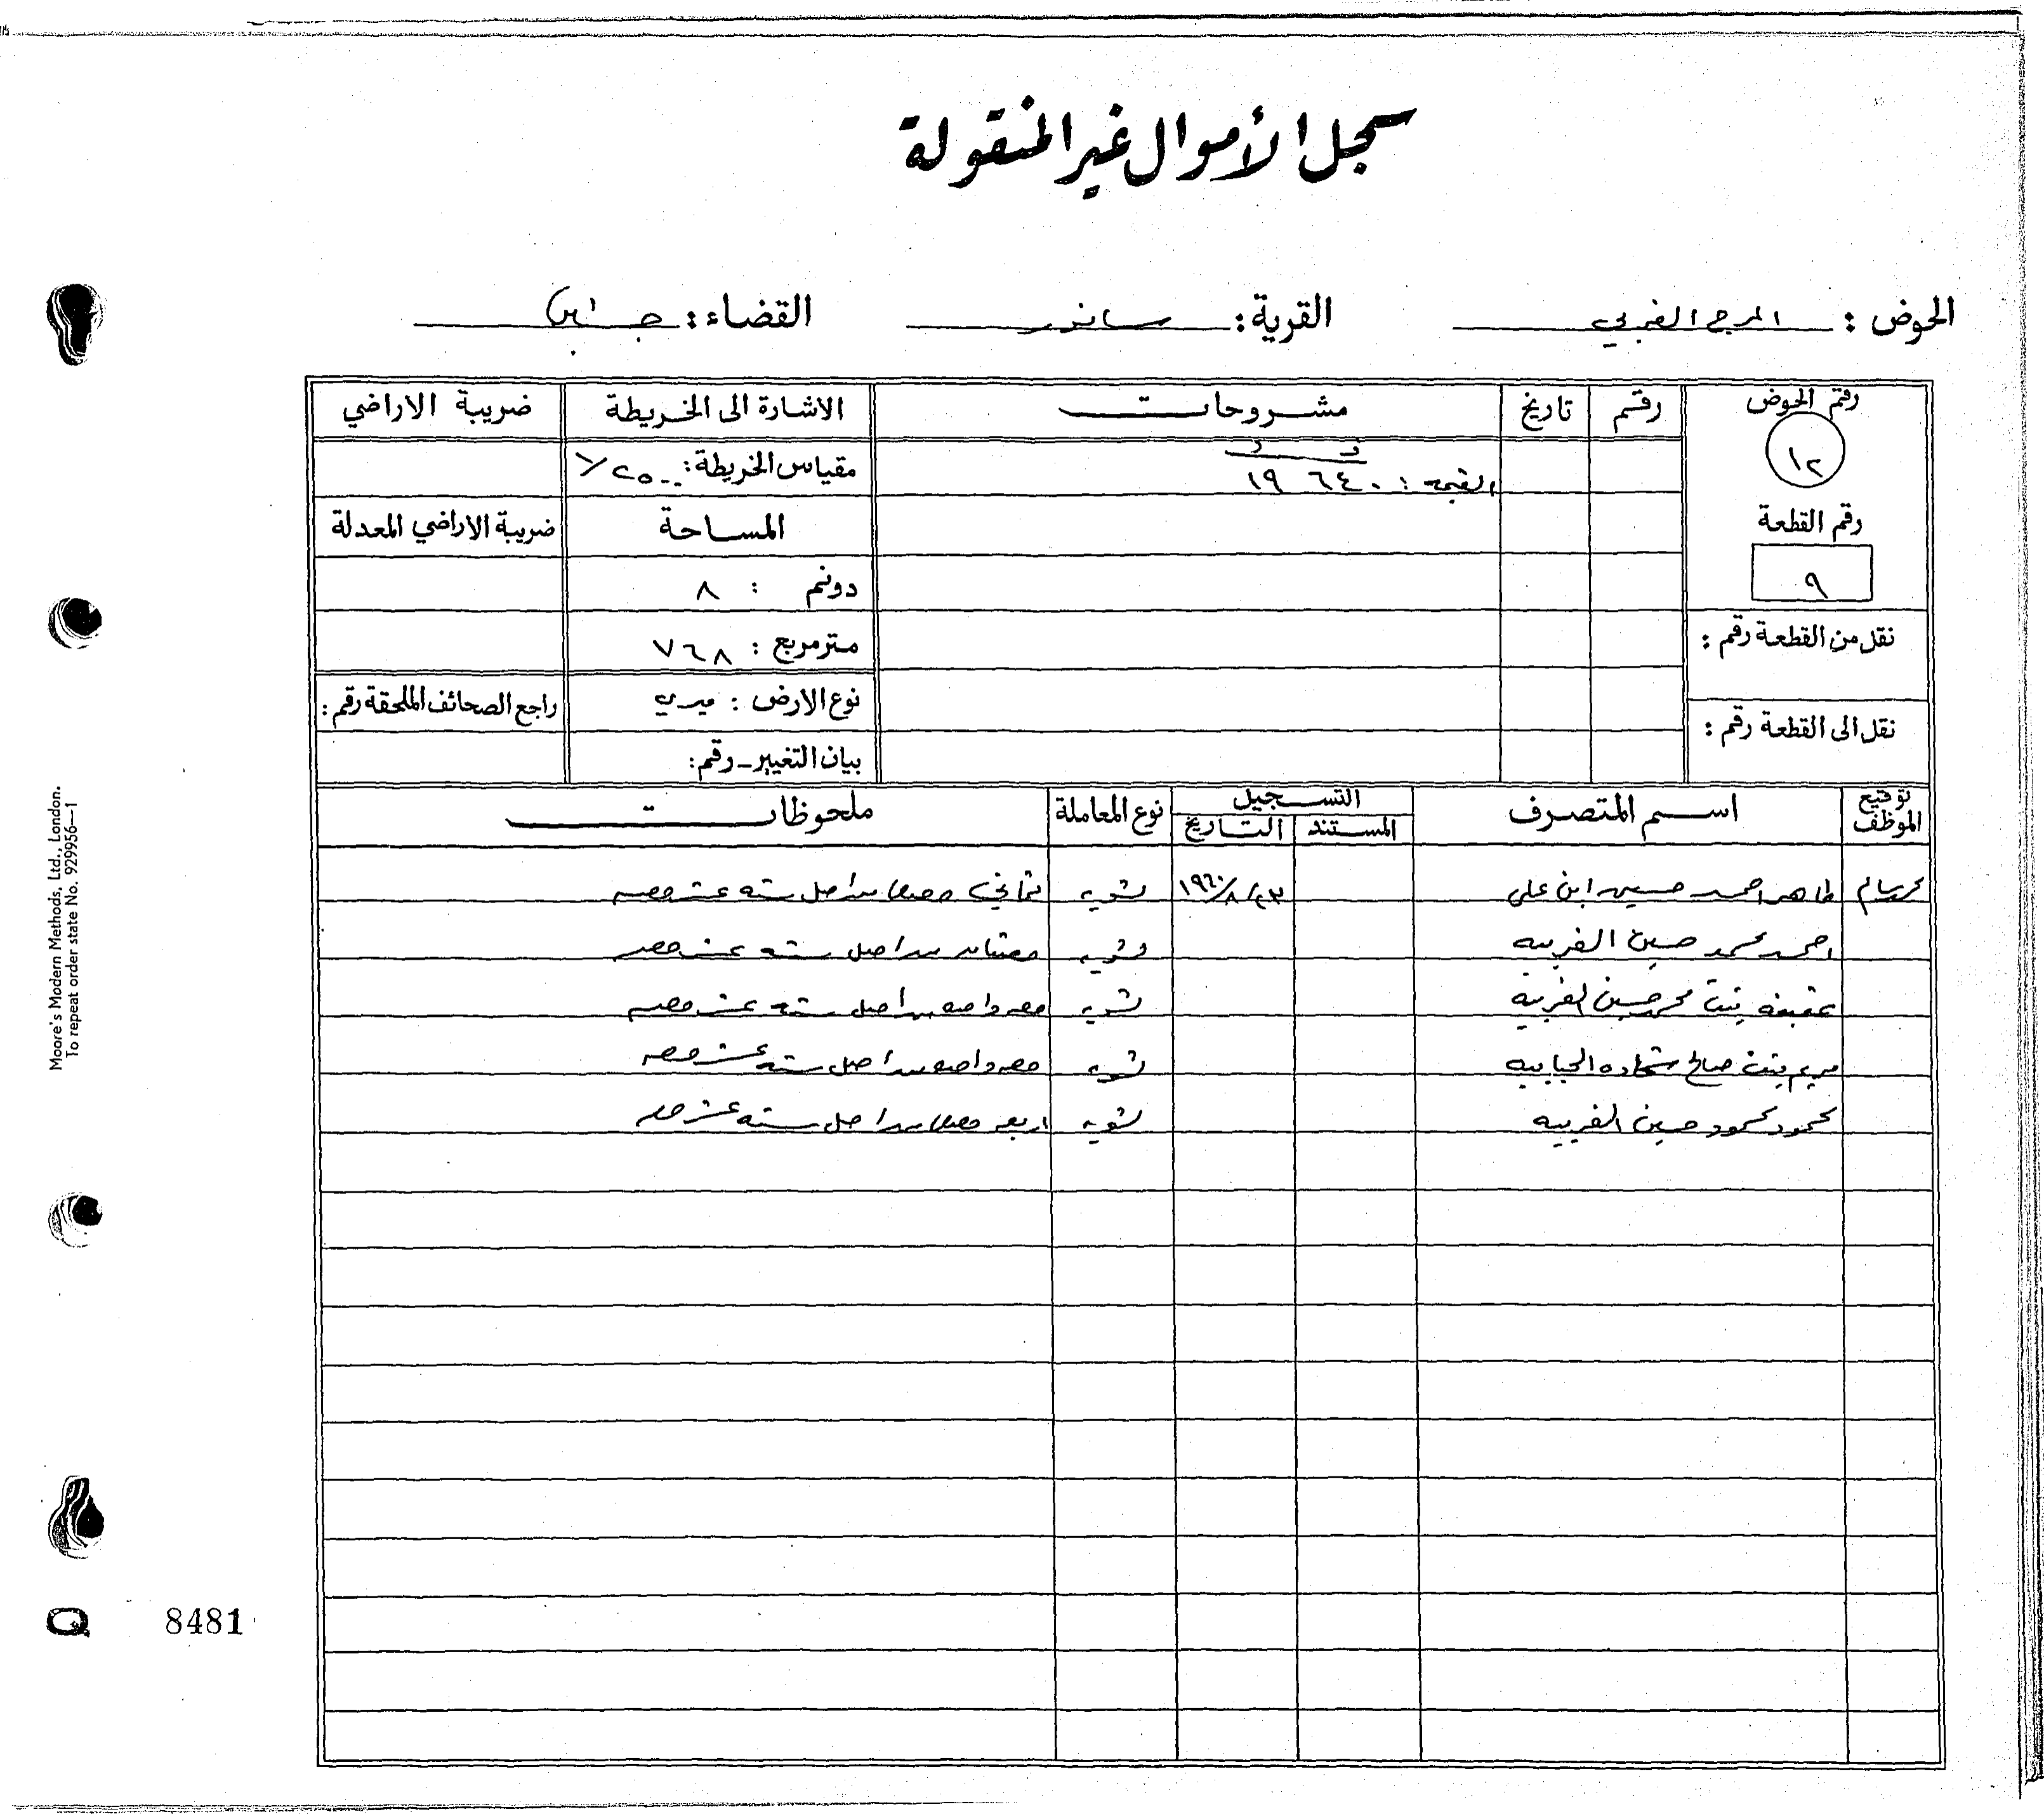 سجل الأموال غير المنقولة
الحوض : المرج الغربي القرية : سانور القضاء : جنين
رقم الحوض رقم تاريخ مشروحات الاشارة الى الخريطة ضريبة الاراضي
١٢
ف د
القيمة : ٦٤٠ ١٩
مقياس الخريطة : ١/٢٥٠٠
رقم القطعة
٩
المساحة ضريبة الاراضي المعدلة
دونم : ٨
نقل من القطعة رقم :
متر مربع : ٧٦٨
نوع الارض : ميري راجع الصحائف الملحقة رقم :
نقل الى القطعة رقم :
بيان التغيير - رقم :
توقيع الموظف اسم المتصرف التسجيل نوع المعاملة ملحوظات
المستند التاريخ
طاهر احمد حسين ابن علي ١٩٦٠/٨/٢٣ تسويه ثماني حصص من اصل سته عشر حصه
احمد محمد حسين الغربيه تسويه حصتان من اصل سته عشر حصه
عفيفه بنت محمد حسين الغربيه تسويه حصه واحده من اصل سته عشر حصه
مريم بنت صالح شحاده الحبايبه تسويه حصه واحده من اصل سته عشر حصه
محمود محمود حسين الغربيه تسويه اربع حصص من اصل سته عشر حصه
Moore's Modern Methods, Ltd., London.
To repeat order state No. 929956—1
Q 8481